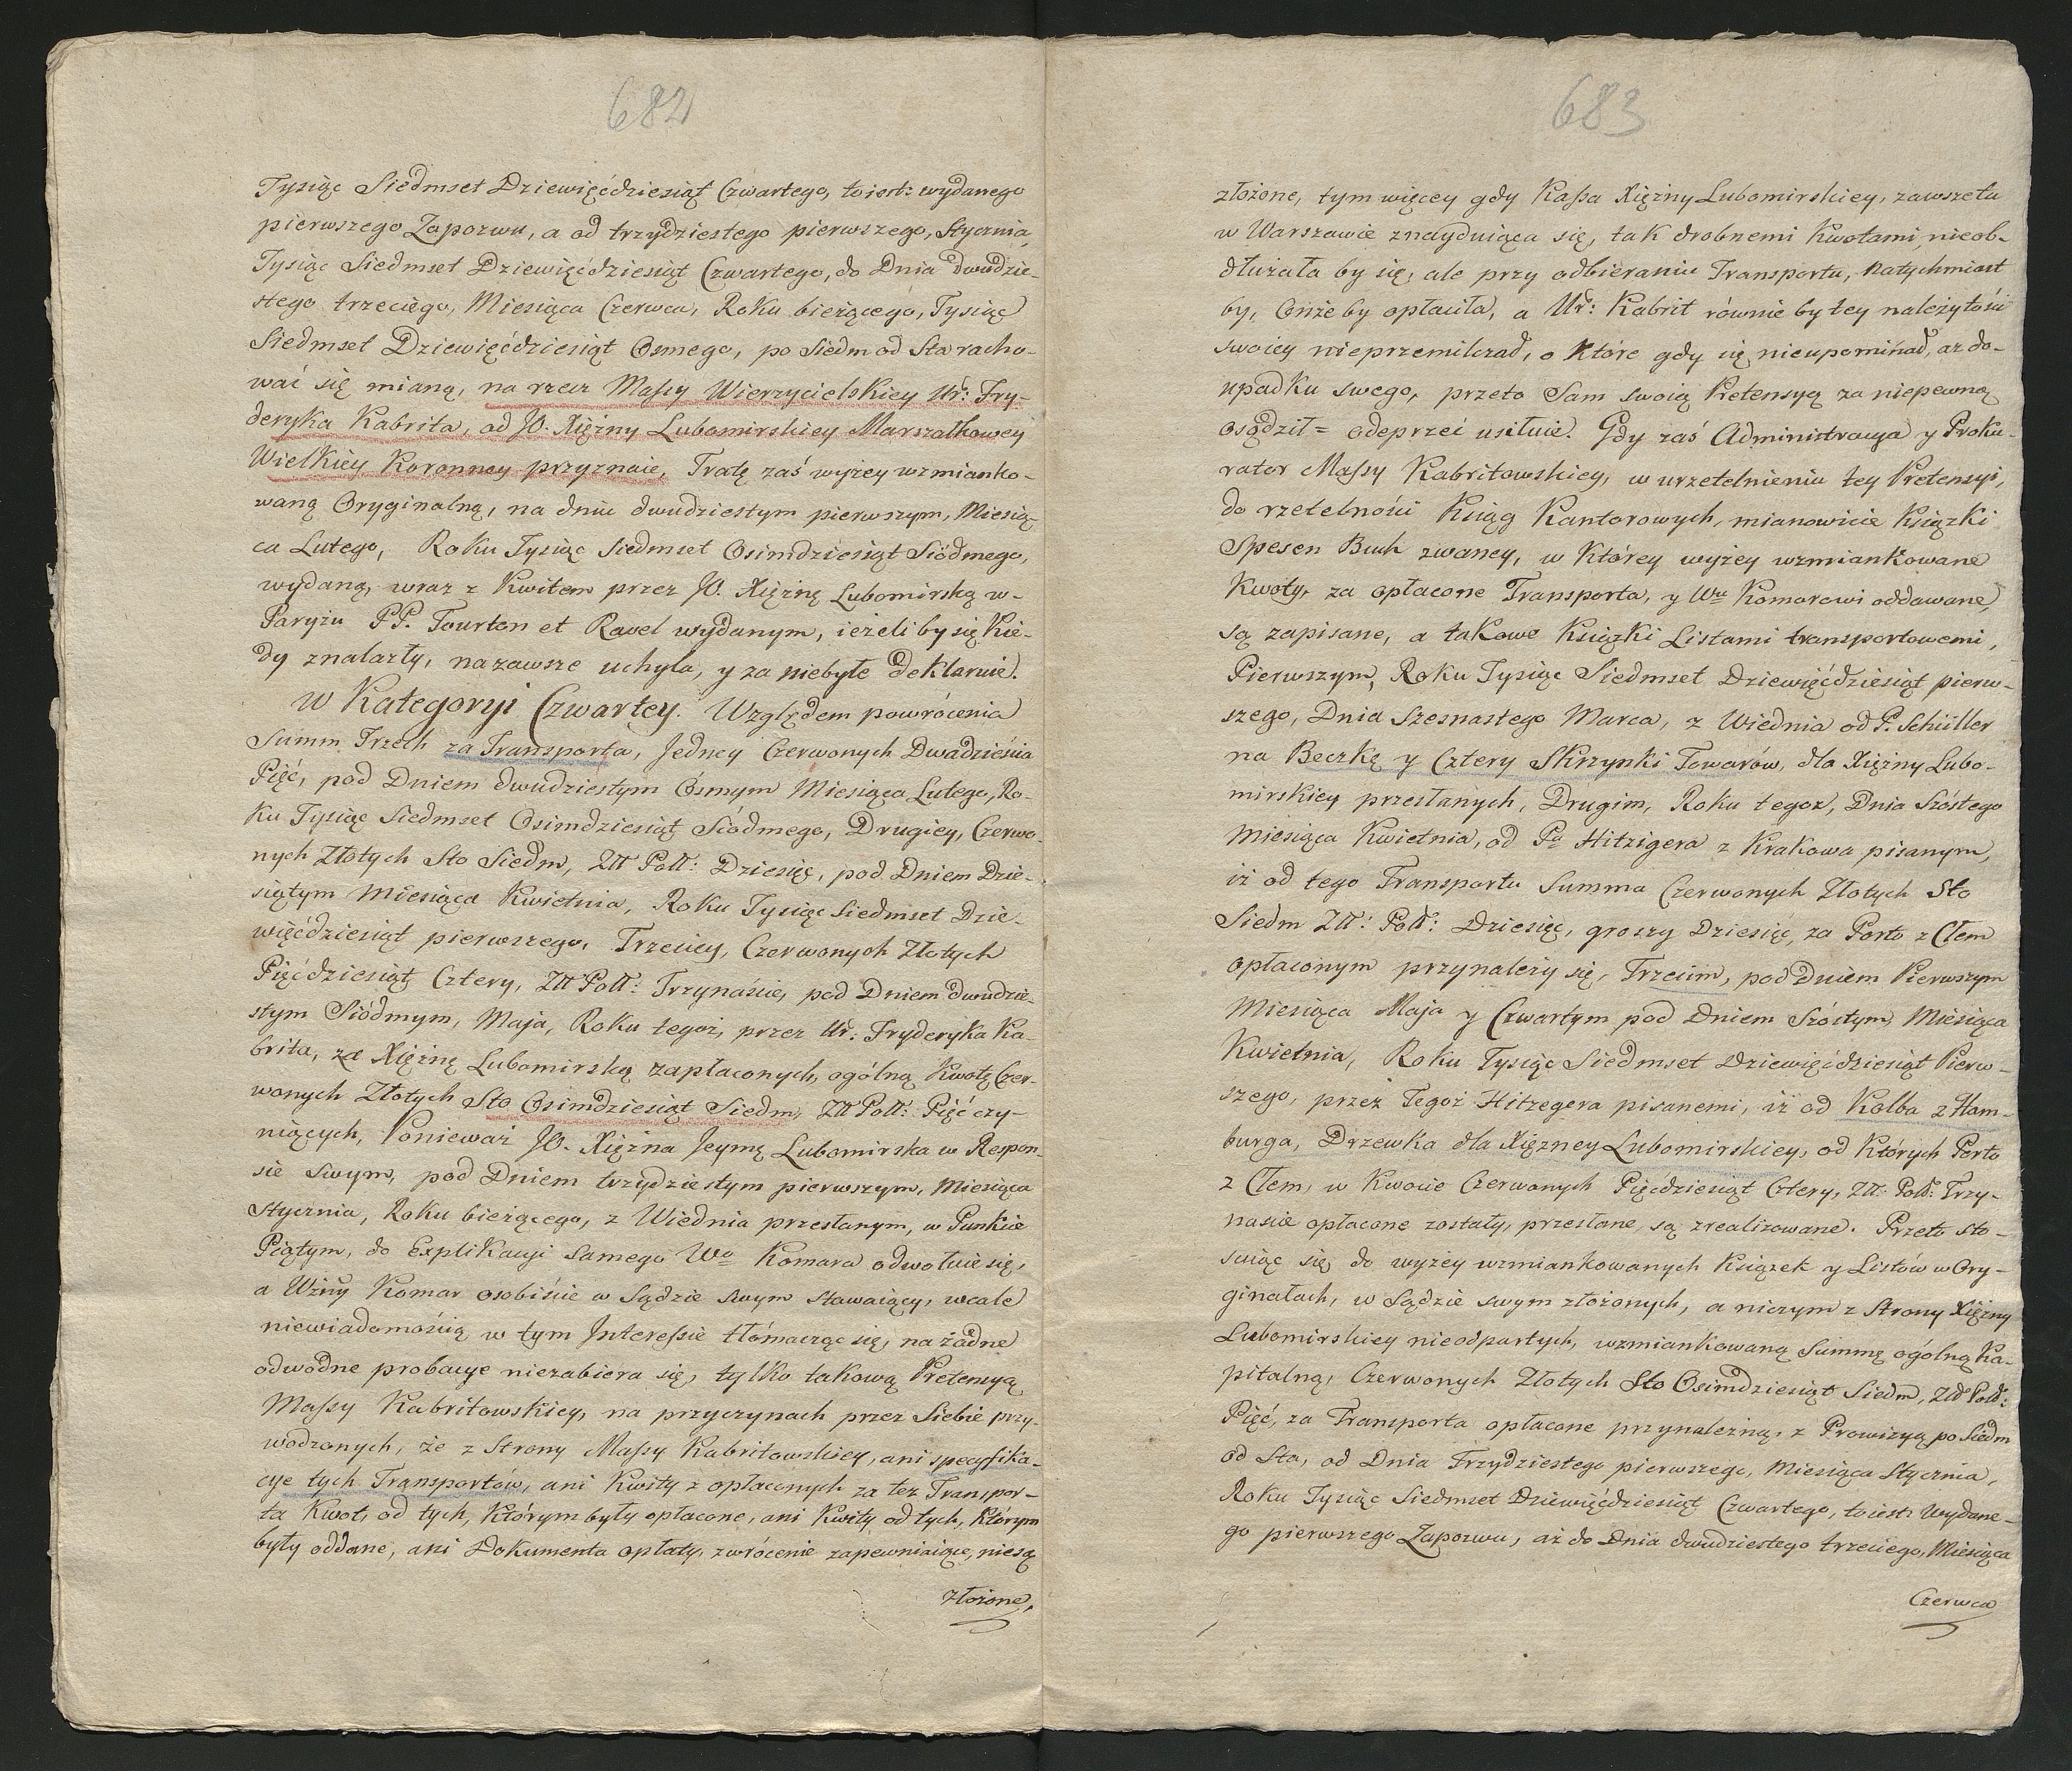 682
Tysiąc Siedmset Dziewięćdziesiąt Czwartego, to iest: wydanego
pierwszego Zapozwu, a od trzydziestego pierwszego, Stycznia
Tysiąc Siedmset Dziewięćdziesiąt Czwartego, do Dnia dwudzie-
stego trzeciego, Miesiąca Czerwca, Roku bieżącego, Tysiąc
Siedmset Dziewięćdziesiąt Osmego, po Siedm od Sta racho-
wać się mianą, na rzecz Massy Wierzycielskiey Ur: Fry-
deryka Kabrita, od JO. Xiężny Lubomirskiey Marszałkowey
Wielkiey Koronney przyznaie, Tratę zaś wyżey wzmianko-
waną Oryginalną, na dniu dwudziestym pierwszym, Miesią-
ca Lutego, Roku Tysiąc Siedmset Osimdziesiąt Siódmego,
wydaną, wraz z Kwitem przez JO. Xiężnę Lubomirską w-
Paryżu PP. Tourton et Ravel wydanym, ieżeli by się kie-
dy znalazły, nazawsze uchyla, y za niebyłe deklaruie.
W Kategoryi Czwartey. Względem powrócenia
Summ Trzech za Transporta, Jedney Czerwonych Dwadzieścia
Pięć, pod Dniem dwudziestym Osmym Miesiąca Lutego, Ro-
ku Tysiąc Siedmset Osimdziesiąt Siódmego, Drugiey, Czerwo-
nych Złotych Sto Siedm, Złł Poll: Dziesięć, pod Dniem Dzie-
siątym Miesiąca Kwietnia, Roku Tysiąc Siedmset Dzie-
więćdziesiąt pierwszego, Trzeciey, Czerwonych Złotych
Pięćdziesiąt Cztery, Złł Poll: Trzynaście, pod Dniem dwudzie-
stym Siódmym, Maja, Roku tegoż, przez Ur: Fryderyka Ka-
brita, za Xiężnę Lubomirską zapłaconych, ogólną Kwotę Czer-
wonych Złotych Sto Osimdziesiąt Siedm, Złł Poll: Pięć czy-
niących, Ponieważ JO. Xiężna Jeymę Lubomirska w Respon-
sie swym, pod Dniem trzydziestym pierwszym, Miesiąca
Stycznia, Roku bieżącego, z Wiednia przesłanym, w Punkcie
Piątym, do Explikacyi samego Wo Komara odwołuie się,
a Wżny Komar osobiście w Sądzie swym stawaiący, wcale
niewiadomością w tym Interessie tłómacząc się, na żadne
odwodne probacye niezabiera się, tylko takową Pretensyą
Massy Kabritowskiey, na przyczynach przez Siebie przy-
wodzonych, że z Strony Massy Kabritowskiey, ani specyfika-
cye tych Transportów, ani Kwity z opłaconych za też Transpor-
ta Kwot, od tych, którym były opłacone, ani Kwity od tych, którym
były oddane, ani Dokumenta opłaty, zwrócenie zapewniaiące, niesą
złożone,
683
złożone, tym więcey gdy Kassa Xiężny Lubomirskiey, zawsze tu
w Warszawie znayduiąca się, tak drobnemi Kwotami, nieob-
dłużała by się, ale przy odbieraniu Transportu, natychmiast
by, Onże by opłaciła, a Ur: Kabrit równie by tey należytości
swoiey nieprzemilczał, o które gdy się nieupominał, aż do-
upadku swego, przeto Sam swoią Pretensyą za niepewną
osądził = odeprzeć usiłuie. Gdy zaś Administracya y Proku-
rator Massy Kabritowskiey, w urzetelnieniu tey Pretensyi,
do rzetelności Ksiąg Kantorowych, mianowicie Książki
Spesen Buch zwaney, w którey wyżey wzmiankowane
Kwoty, za opłacone Transporta, y Wu Komorowi oddawane,
są zapisane, a takowe Książki Listami transportowemi,
Pierwszym, Roku Tysiąc Siedmset Dziewięćdziesiąt pierw-
szego, Dnia Szesnastego Marca, z Wiednia od P. Schüller
na Beczkę y Cztery Skrzynki Towarów, dla Xiężny Lubo-
mirskiey przesłanych, Drugim, Roku tegoż, Dnia Szóstego
Miesiąca Kwietnia, od Pa Hitzigera z Krakowa pisanym,
iż od tego Transportu Summa Czerwonych Złotych Sto
Siedm Złł: Poll: Dziesięć, groszy Dziesięć, za Porto z Cłem
opłaconym przynależy się, Trzecim, pod Dniem Pierwszym
Miesiąca Maja y Czwartym pod Dniem Szóstym, Miesiąca
Kwietnia, Roku Tysiąc Siedmset Dziewięćdziesiąt Pierw-
szego, przez Tegoż Hitzegera pisanemi, iż od Kolba z Ham-
burga, Drzewka dla Xiężney Lubomirskiey, od których Porto
z Cłem, w Kwocie Czerwonych Pięćdziesiąt Cztery, Złł: Poll: Trzy-
naście opłacone zostały, przesłane, są zrealizowane. Przeto sto-
suiąc się, do wyżey wzmiankowanych Książek y Listów w Ory-
ginałach, w Sądzie swym złożonych, a niczym z Strony Xiężny
Lubomirskiey nieodpartych, wzmiankowaną Summę ogólną Ka-
pitalną, Czerwonych Złotych Sto Osimdziesiąt Siedm, Złł Poll:
Pięć, za Transporta opłacone przynależną, z Prowizyą po Siedm
od Sta, od Dnia Trzydziestego pierwszego, Miesiąca Stycznia,
Roku Tysiąc Siedmset Dziewięćdziesiąt Czwartego, to iest: Wydane-
go pierwszego Zapozwu, aż do Dnia dwudziestego trzeciego, Miesiąca
Czerwca